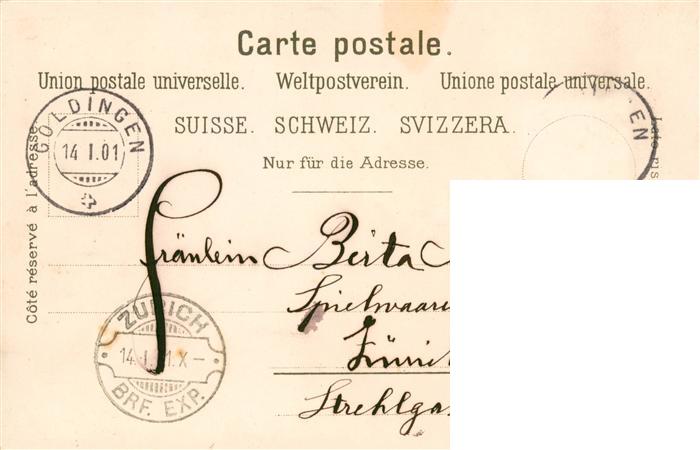 Carte postale.
Union postale universelle. Weltpostverein. Unione postale universale.
SUISSE. SCHWEIZ. SVIZZERA.
Nur für die Adresse.
Côté réservé à l'adresse.
GOLDINGEN
14 I.01
EN
Fräulein Berta
ZÜRICH
14.I. 1.X–
BRF. EXP.